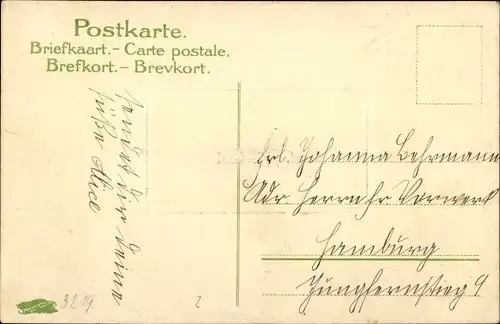 Postkarte.
Briefkaart.- Carte postale.
Brefkort.- Brevkort.
sendet dir deine
süße Alice
Frl. Johanna Behrmann
Adr. Herrn Fr Vorwerk
Hamburg
Jungfernstieg 9
32.19
2